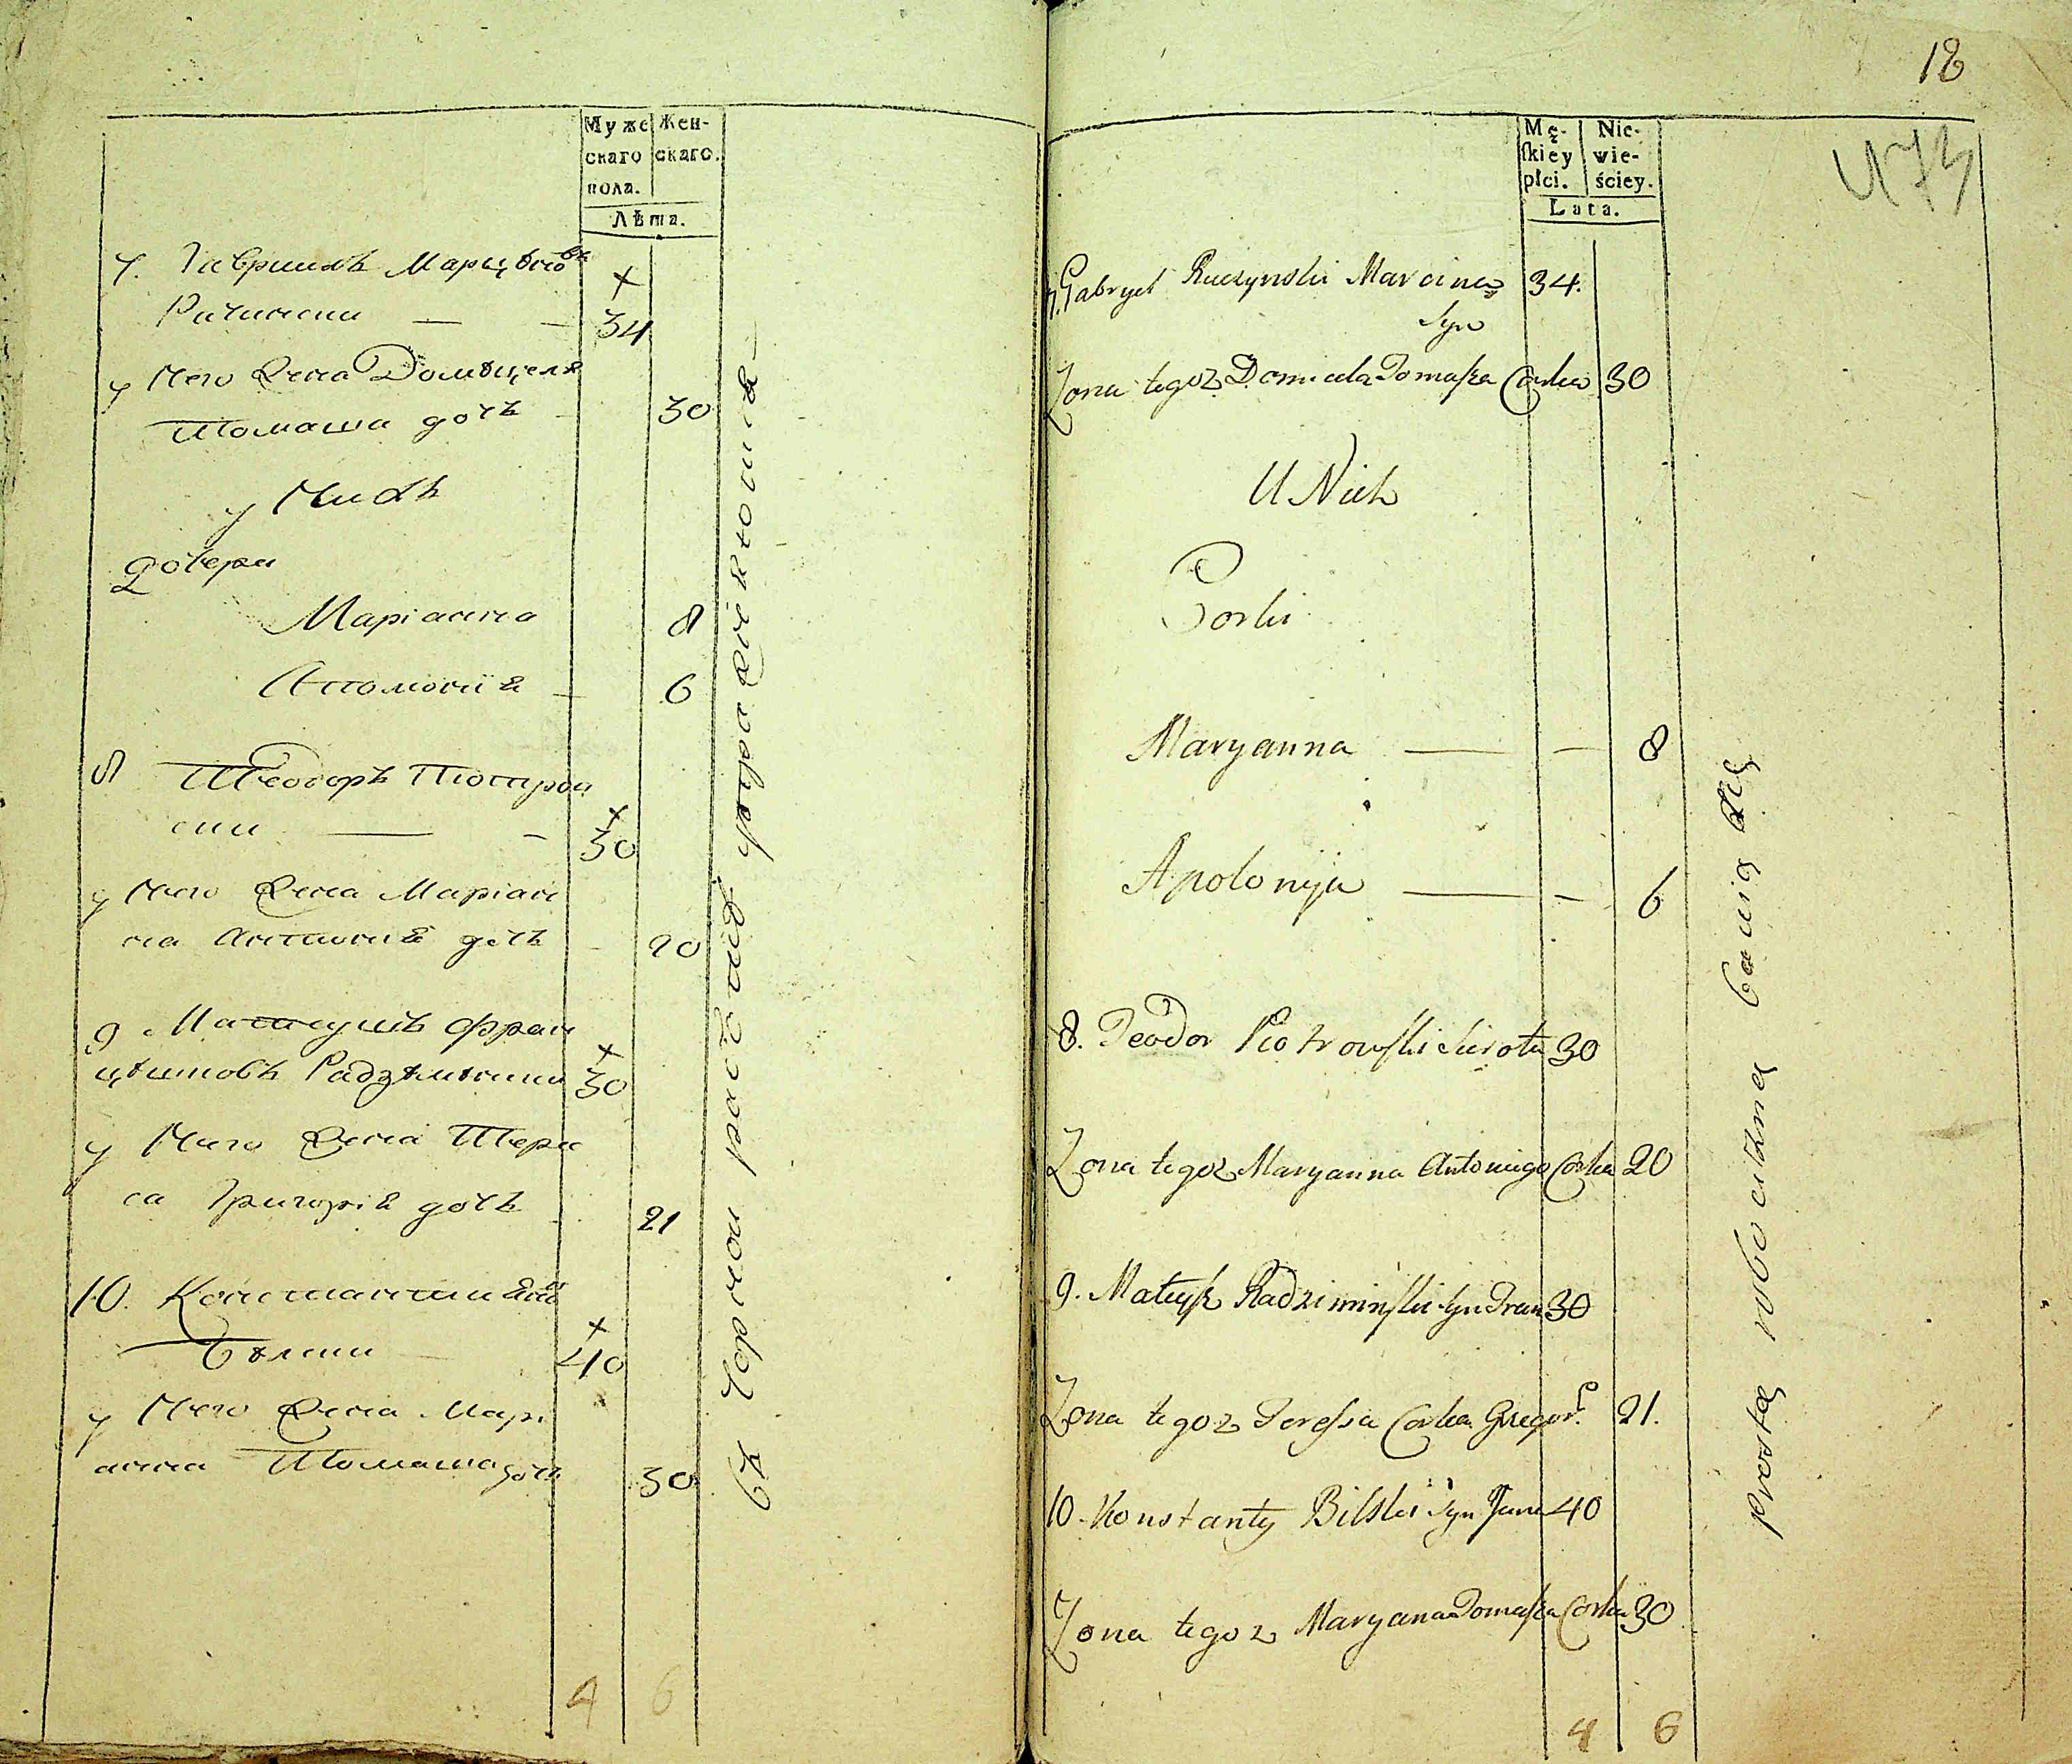 Муже
скаго
пола.
Жен-
скаго.
Лѣта.
7. Гаврıилъ Марцѣновъ
Рачински — — 34
у Него Жена Домѣцеля
Томаша дочь 30
у Нихъ
Дочери
Марıанна 8
Аполонія — 6
8 Теодоръ Піотров
ски — — 30
у Него Жена Марıан
на Антонія дочь 20
9 Матеушъ Фран
цѣшковъ Радзѣмински 30
у Него Жена Тере
са Григорія дочь 21
10. Константи Яновъ
Бѣлски — 40
у Него Жена Марı
анна Томаша дочь 30
4 6
въ Чорной работѣ упражняются
18
473
Mę-
ſkiey
płci.
Nie-
wie-
ściey.
Lata.
7. Gabryel Raczynski Marcina 34.
Syn
Zona tegoz Domicela Tomaſza Corka 30
U Nich
Corki
Maryanna — — 8
Apolonija — — 6
8. Teodor Piotrowſki Sierota 30
Zona tegoz Maryanna Antoniego Corka 20
9. Mateyſz Radzimińſki Syn Fran 30
Zona tegoz Tereſsa Corka Gregor. 21.
10. Konstanty Bilski Syn Jana 40
Zona tegoz Maryana Tomaſza Corka 30
4 6
Prostą robocizną bawią się